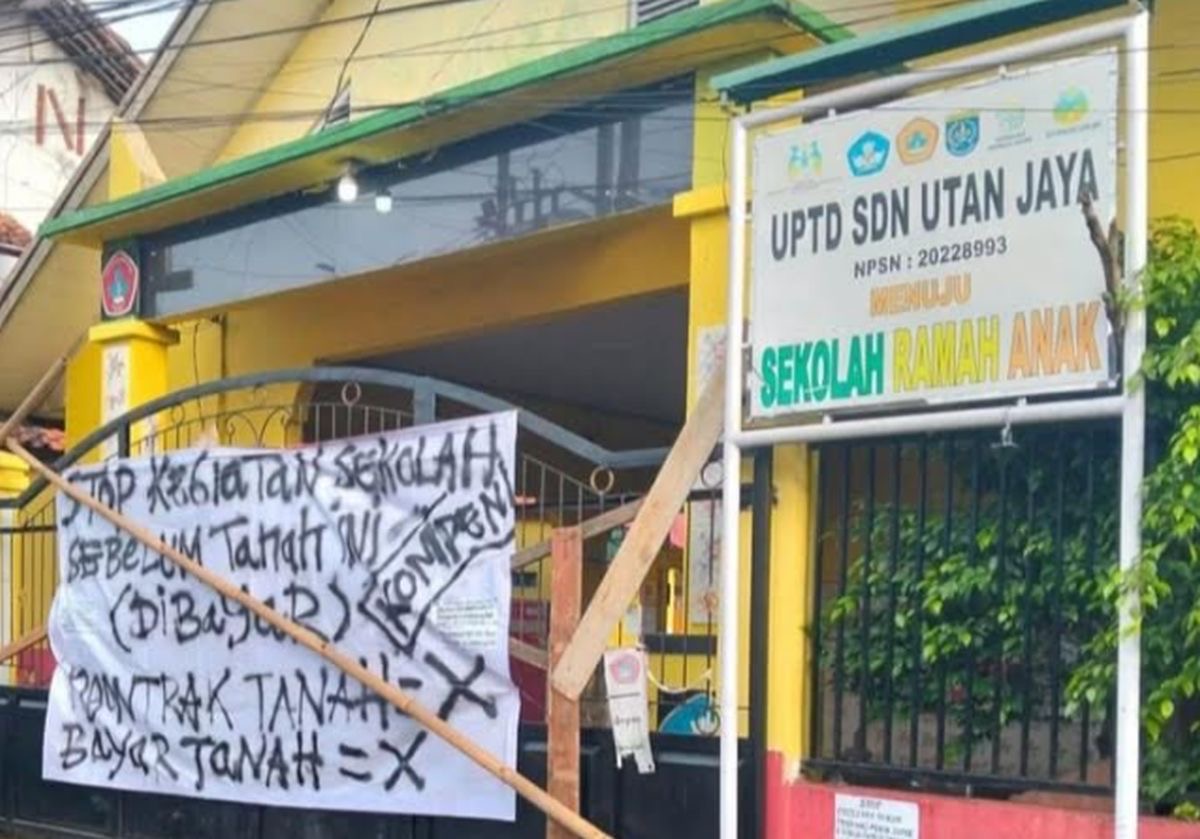 UPTD SDN UTAN JAYA
NPSN : 20228993
MENUJU
SEKOLAH RAMAH ANAK
STOP KEGIATAN SEKOLAH
SEBELUM TaNaH iNi
(DiBayaR) KOMPEN
KONTRAK TANAH = X
BayaR TaNAH = X